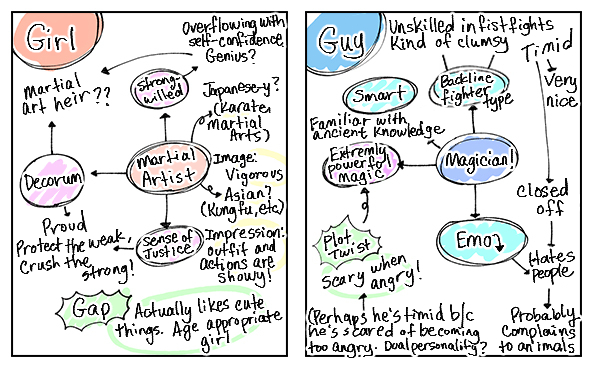 Girl
Overflowing with
self-confidence
Genius?
Martial
art heir??
Strong-
willed
Japanese-y?
(Karate,
martial
Arts)
Martial
Artist
Decorum
Image:
Vigorous
Asian?
(Kungfu, etc)
Proud
Protect the weak,
crush the
strong!
Sense of
Justice
Impression:
outfit and
actions are
showy!
Gap
Actually likes cute
things. Age appropriate
girl
Guy
Unskilled in fistfights
Kind of clumsy
Timid
Very
nice
Smart
Backline
fighter
type
Familiar with
ancient knowledge
Extremly
powerful
magic
Magician!
closed
off
Plot
Twist
Scary when
angry!
Emo?
Hates
people
(Perhaps he's timid b/c
he's scared of becoming
too angry. Dual personality?
Probably
complaining
to animals